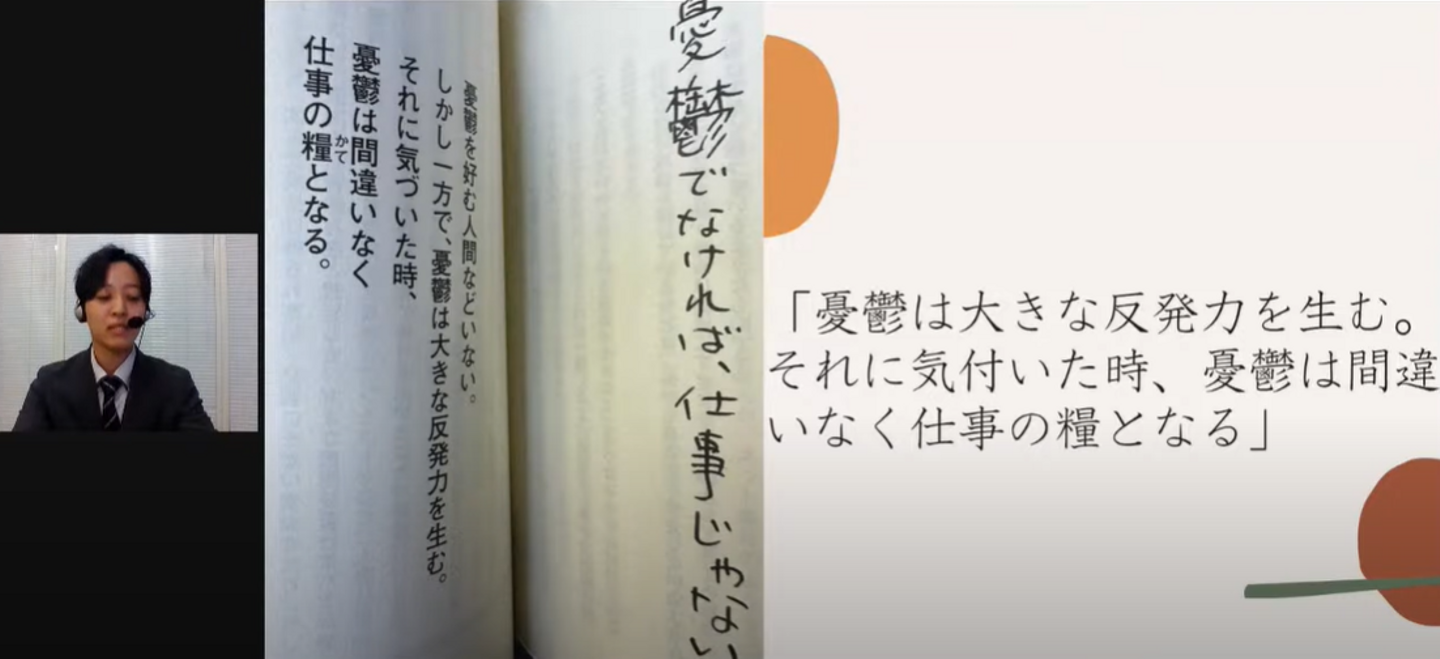 憂鬱でなければ、仕事じゃない
憂鬱を好む人間などいない。
しかし一方で、憂鬱は大きな反発力を生む。
それに気づいた時、
憂鬱は間違いなく
かて
仕事の糧となる。
「憂鬱は大きな反発力を生む。
それに気付いた時、憂鬱は間違
いなく仕事の糧となる」